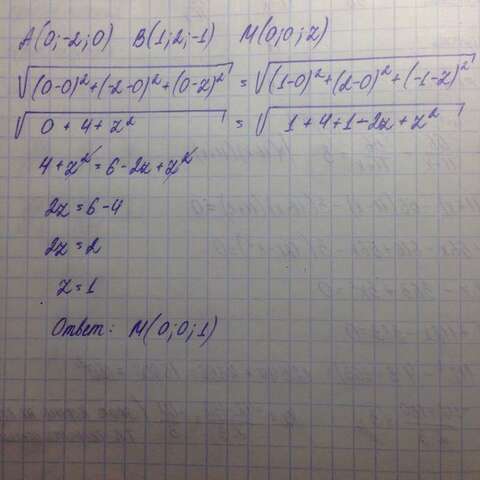 A(0;-2;0) B(1;2;-1) M(0;0;z)
√((0-0)²+(-2-0)²+(0-z)²) = √((1-0)²+(2-0)²+(-1-z)²)
√(0+4+z²) = √(1+4+1-2z+z²)
4+z²=6-2z+z²
2z=6-4
2z=2
z=1
Ответ: M(0;0;1)